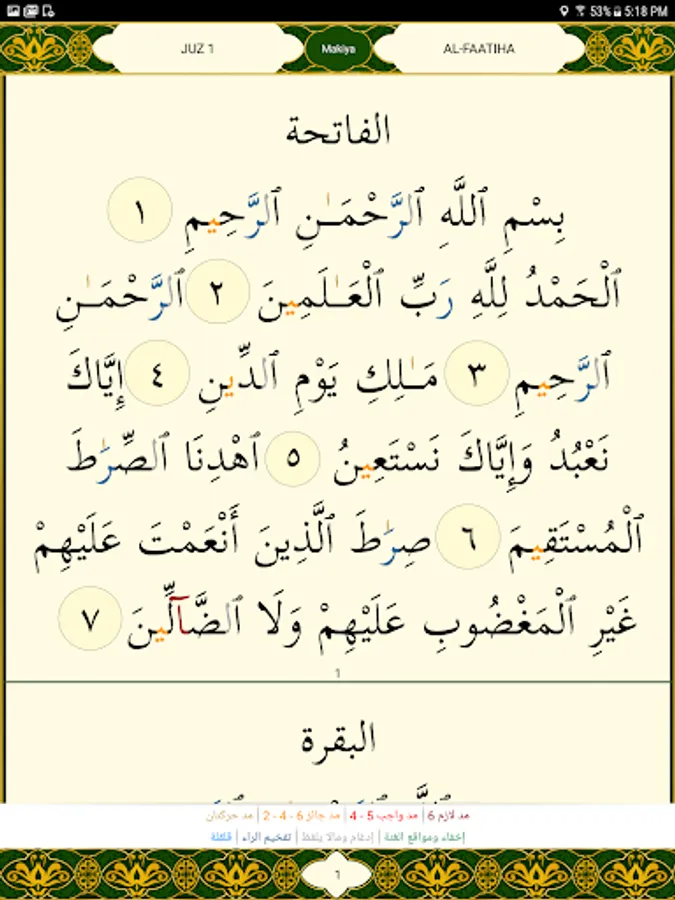 53% 5:18 PM
JUZ 1 Makiya AL-FAATIHA
الفاتحة
بِسْمِ ٱللَّهِ ٱلرَّحْمَـٰنِ ٱلرَّحِيمِ ١
ٱلْحَمْدُ لِلَّهِ رَبِّ ٱلْعَـٰلَمِينَ ٢ ٱلرَّحْمَـٰنِ
ٱلرَّحِيمِ ٣ مَـٰلِكِ يَوْمِ ٱلدِّينِ ٤ إِيَّاكَ
نَعْبُدُ وَإِيَّاكَ نَسْتَعِينُ ٥ ٱهْدِنَا ٱلصِّرَٰطَ
ٱلْمُسْتَقِيمَ ٦ صِرَٰطَ ٱلَّذِينَ أَنْعَمْتَ عَلَيْهِمْ
غَيْرِ ٱلْمَغْضُوبِ عَلَيْهِمْ وَلَا ٱلضَّآلِّينَ ٧
١
البقرة
مد لازم 6 | مد واجب 5 - 4 | مد جائز 6 - 4 - 2 | مد حركتان
إخفاء ومواقع الغنة | إدغام ومالا يلفظ | تفخيم الراء | قلقلة
١